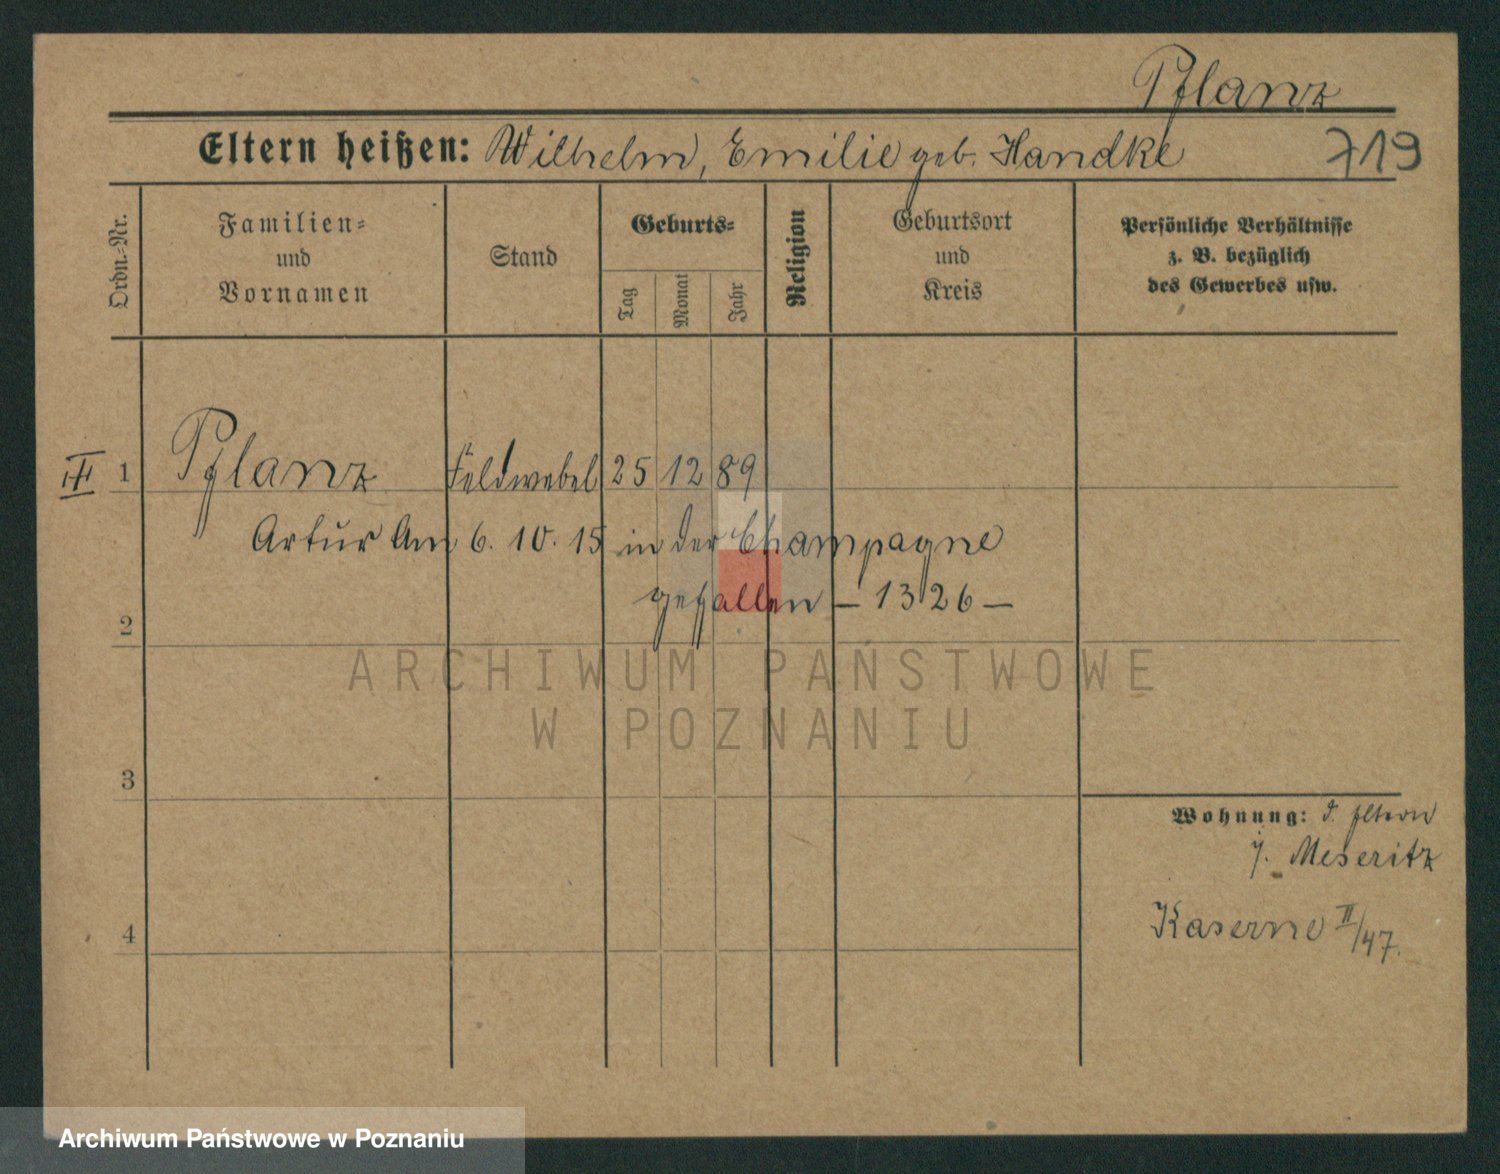 Pflanz
Eltern heißen: Wilhelm, Emilie geb. Handke 719
Ordn.-Nr.
Familien-
und
Vornamen
Stand
Geburts-
Tag
Monat
Jahr
Religion
Geburtsort
und
Kreis
Persönliche Verhältnisse
z. B. bezüglich
des Gewerbes usw.
III 1 Pflanz Feldwebel 25 12 89
Artur Am 6. 10. 15 in der Champagne
gefallen – 1326 –
2
ARCHIWUM PAŃSTWOWE
W POZNANIU
3
Wohnung: d. Eltern
i. Meseritz
Kaserne II/47.
4
Archiwum Państwowe w Poznaniu